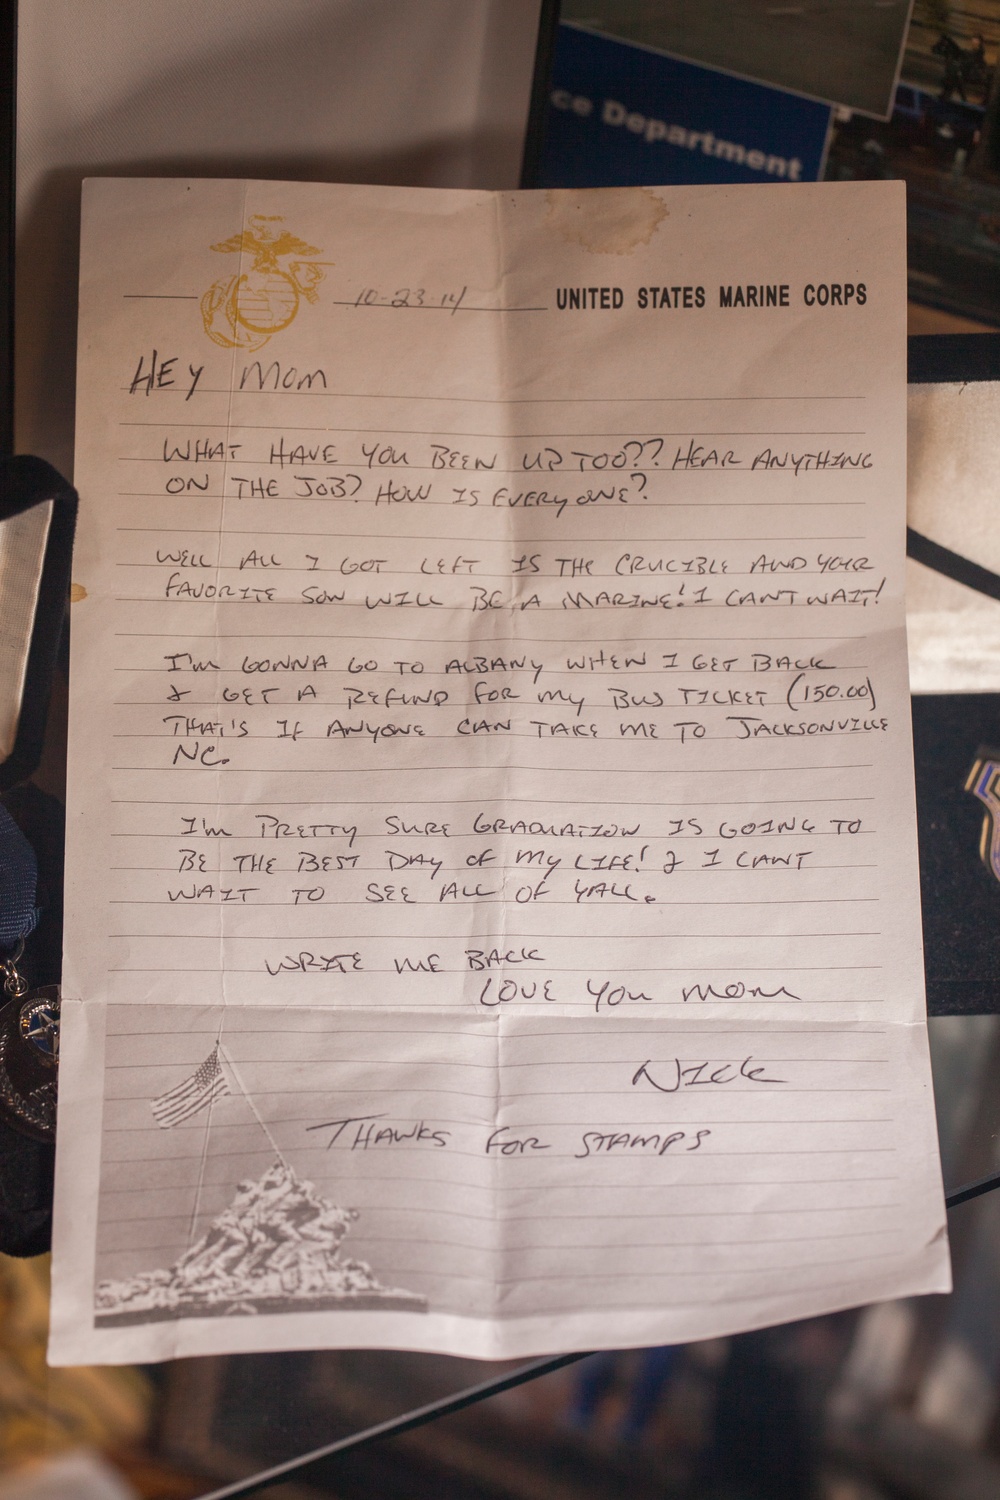 ce Department
10-23-14 UNITED STATES MARINE CORPS
HEY MOM
WHAT HAVE YOU BEEN UP TOO?? HEAR ANYTHING
ON THE JOB? HOW IS EVERYONE?
WELL ALL I GOT LEFT IS THE CRUCIBLE AND YOUR
FAVORITE SON WILL BE A MARINE! I CANT WAIT!
I'm GONNA GO TO ALBANY WHEN I GET BACK
& GET A REFUND FOR MY BUS TICKET (150.00)
THAT'S IF ANYONE CAN TAKE ME TO JACKSONVILLE
NC.
I'm PRETTY SURE GRADUATION IS GOING TO
BE THE BEST DAY OF MY LIFE! & I CANT
WAIT TO SEE ALL OF YALL.
WRITE ME BACK
LOVE YOU MOM
NICK
THANKS FOR STAMPS